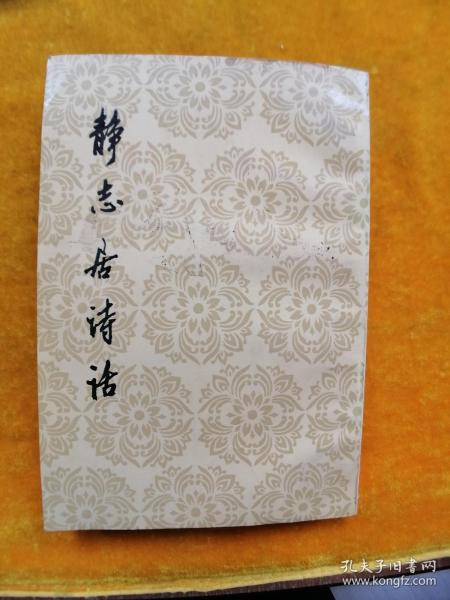 静志居诗话
孔夫子旧书网
www.kongfz.com